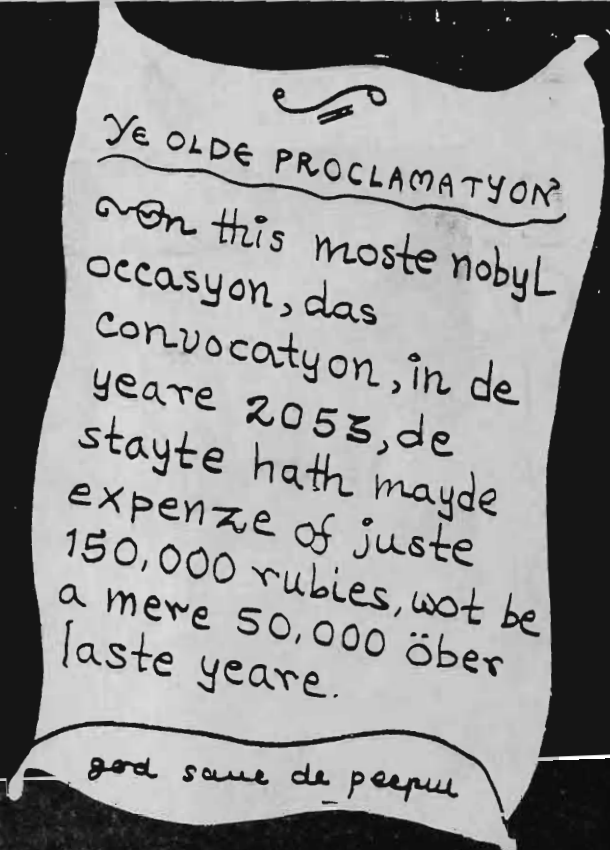 YE OLDE PROCLAMATYON
On this moste nobyl
occasyon, das
convocatyon, in de
yeare 2053, de
stayte hath mayde
expenze of juste
150,000 rubies, wot be
a mere 50,000 öber
laste yeare.
god save de peepul